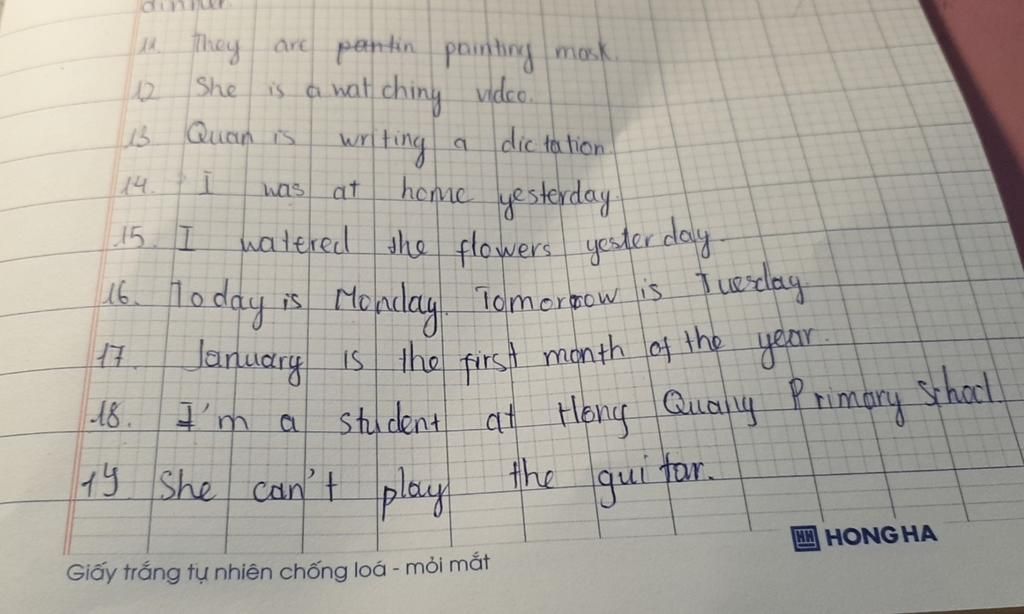 dinner.
11. They are pantin painting mask.
12 She is a wat ching video.
13 Quan is writing a dictation
14. I was at home yesterday.
15. I watered the flowers yesterday.
16. Today is Monday. Tomorrow is Tuesday
17. January is the first month of the year.
18. I'm a student at Hong Quang Primary School.
19 She can't play the guitar.
HH HONG HA
Giấy trắng tự nhiên chống loá - mỏi mắt